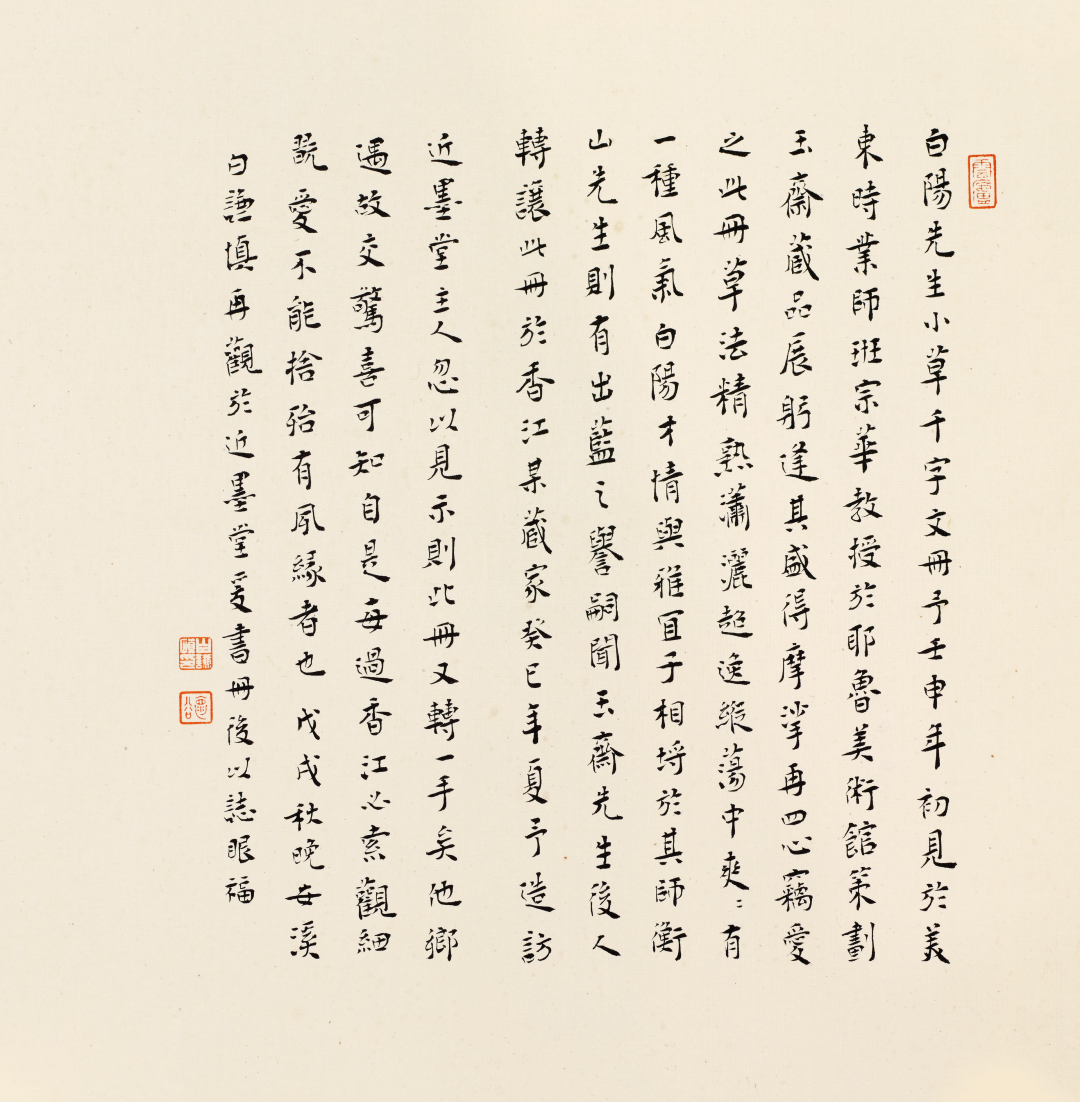 白陽先生小草千字文冊予壬申年初見於美
東時業師班宗華教授於耶魯美術館策劃
玉齋藏品展躬逢其盛得摩挲再四心竊愛
之此冊草法精熟瀟灑超逸縱蕩中爽〻有
一種風氣白陽才情與雅宜子相埒於其師衡
山先生則有出藍之譽嗣聞玉齋先生後人
轉讓此冊於香江某藏家癸巳年夏予造訪
近墨堂主人忽以見示則此冊又轉一手矣他鄉
遇故交驚喜可知自是每過香江必索觀細
翫愛不能捨殆有夙緣者也戊戌秋晚安溪
白謙慎再觀於近墨堂爰書冊後以誌眼福